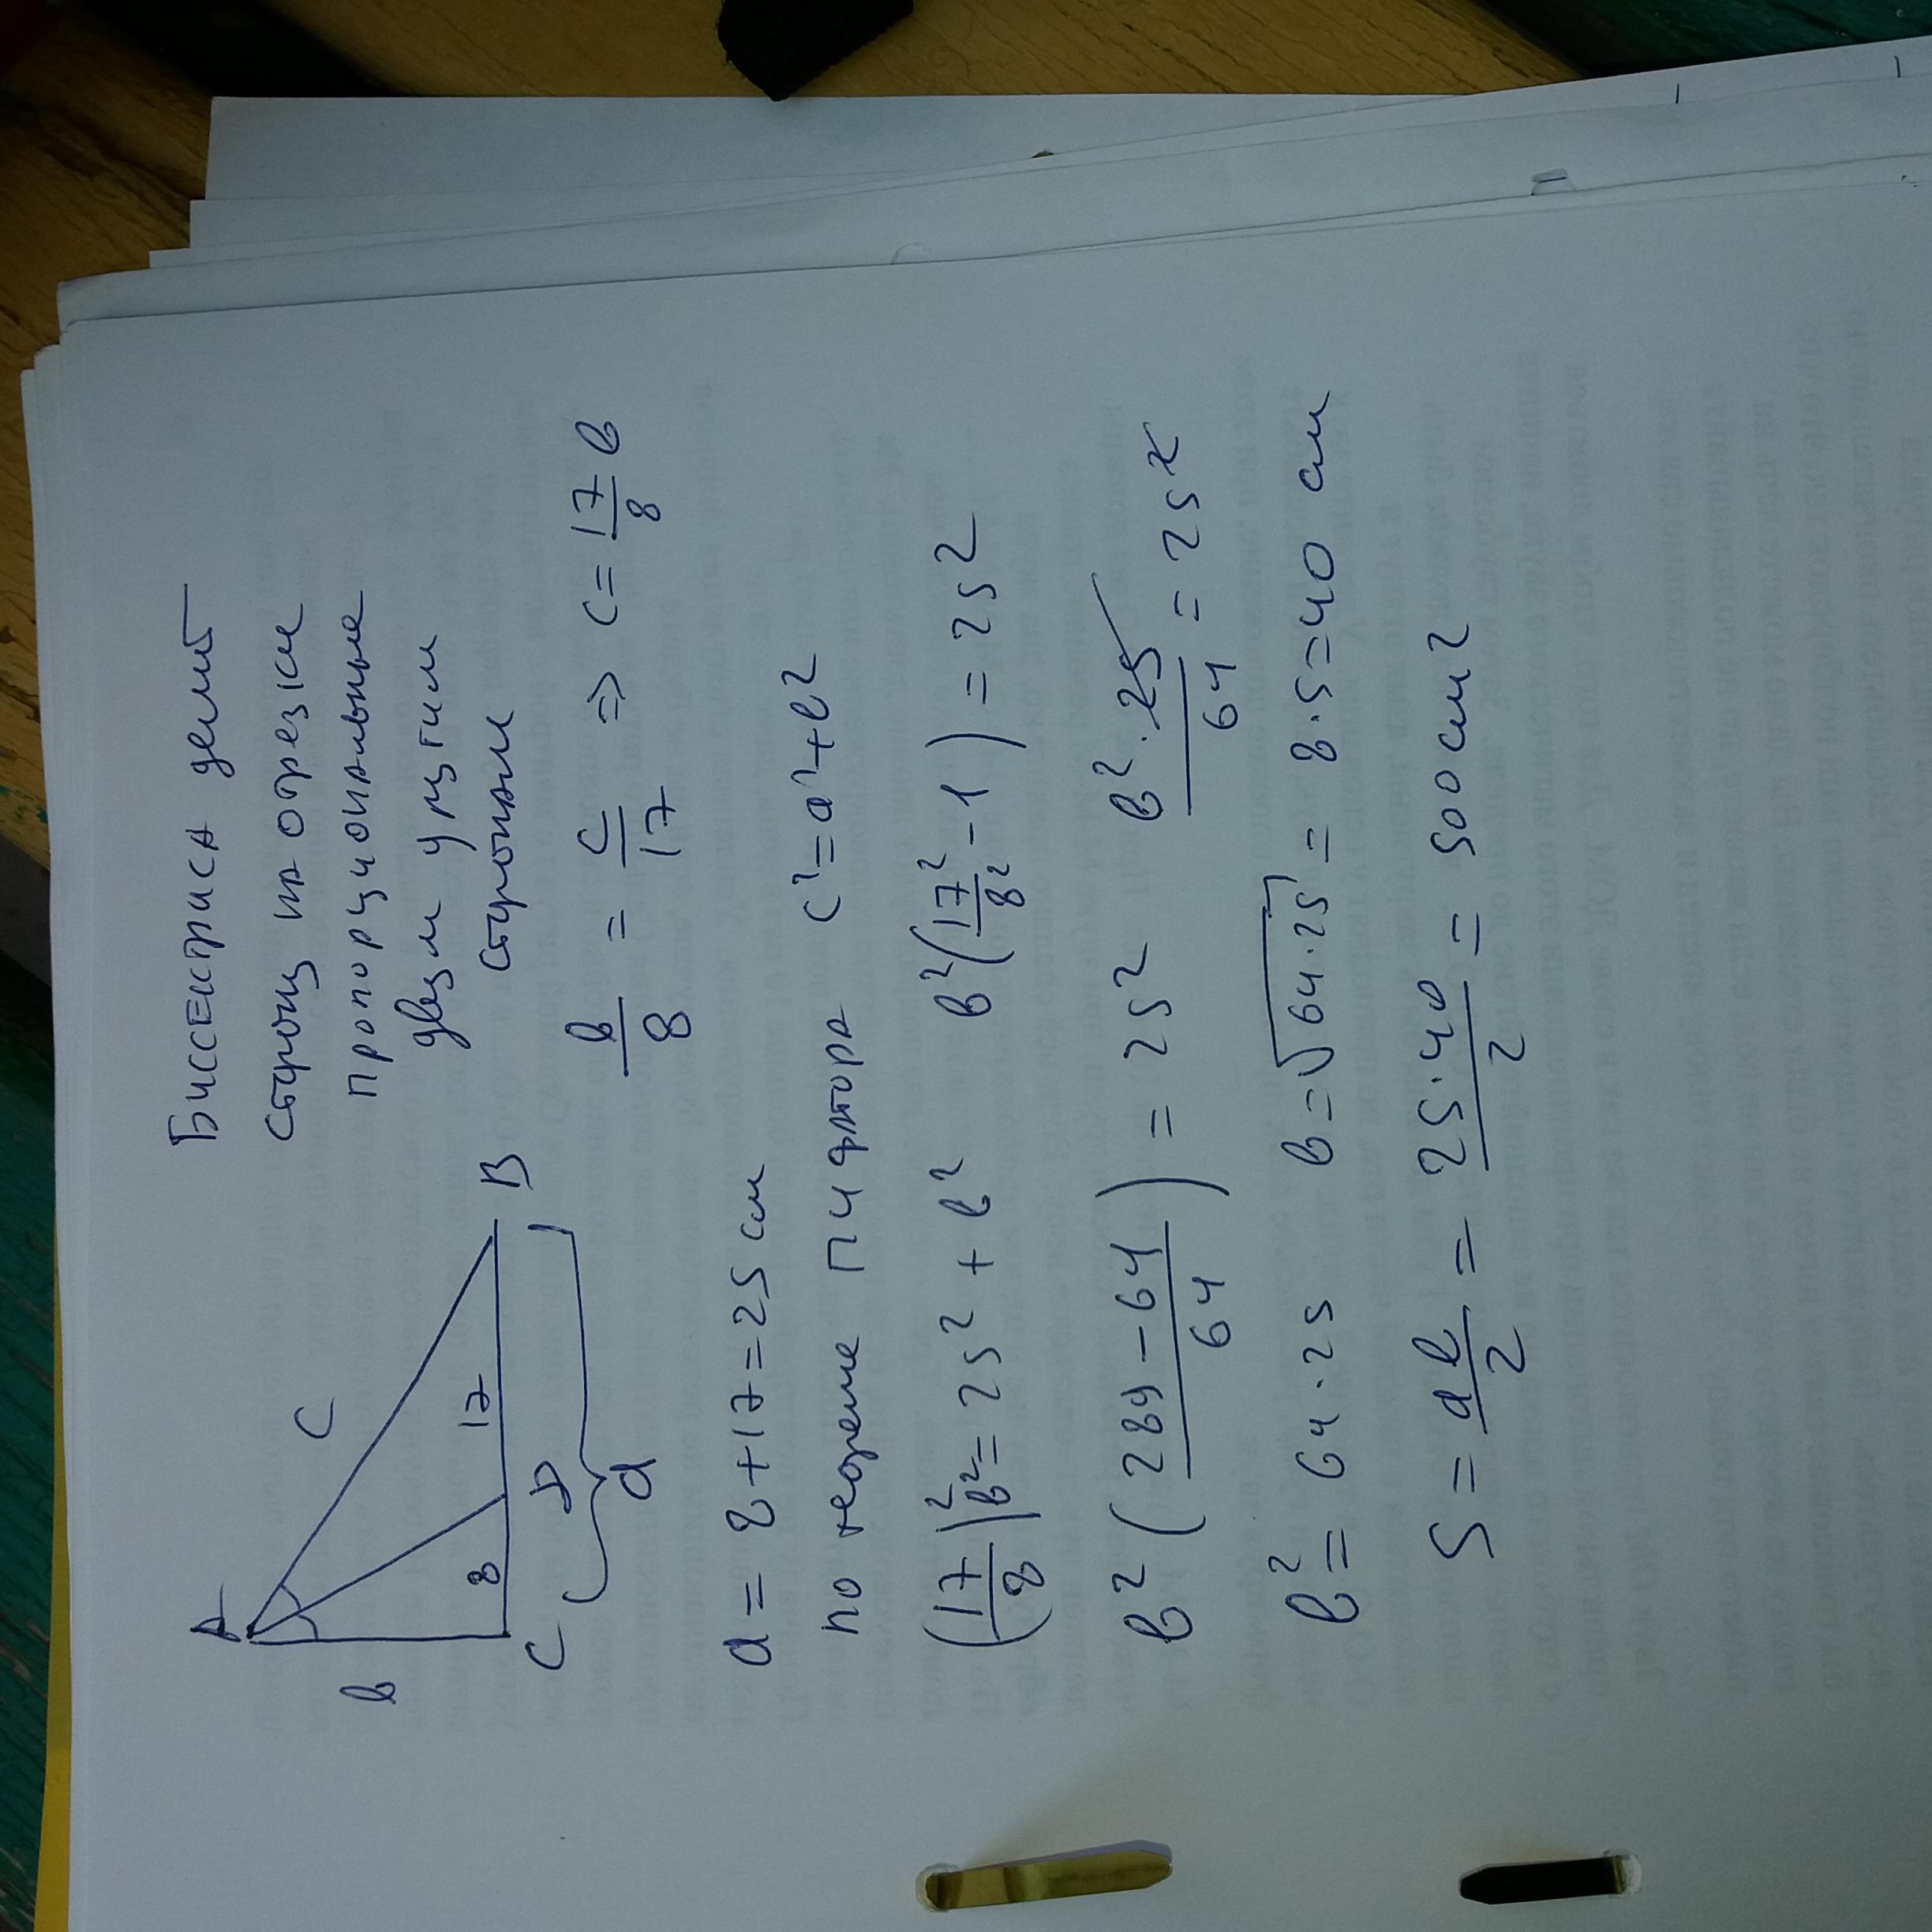 Биссектриса делит
сторону на отрезки
пропорциональные
двум
сторонам
A
c
b
8
17
C
D
B
a
b/8 = c/17 => c = 17/8 b
a = 8+17=25 см
по теореме Пифагора c²=a²+b²
(17/8)² b² = 25² + b²
b²(17²/8² - 1) = 25²
b² ((289-64)/64) = 25²
b²·25/64 = 25²
b² = 64·25
b=√64·25 = 8·5=40 см
S = ab/2 = 25·40/2 = 500 см²